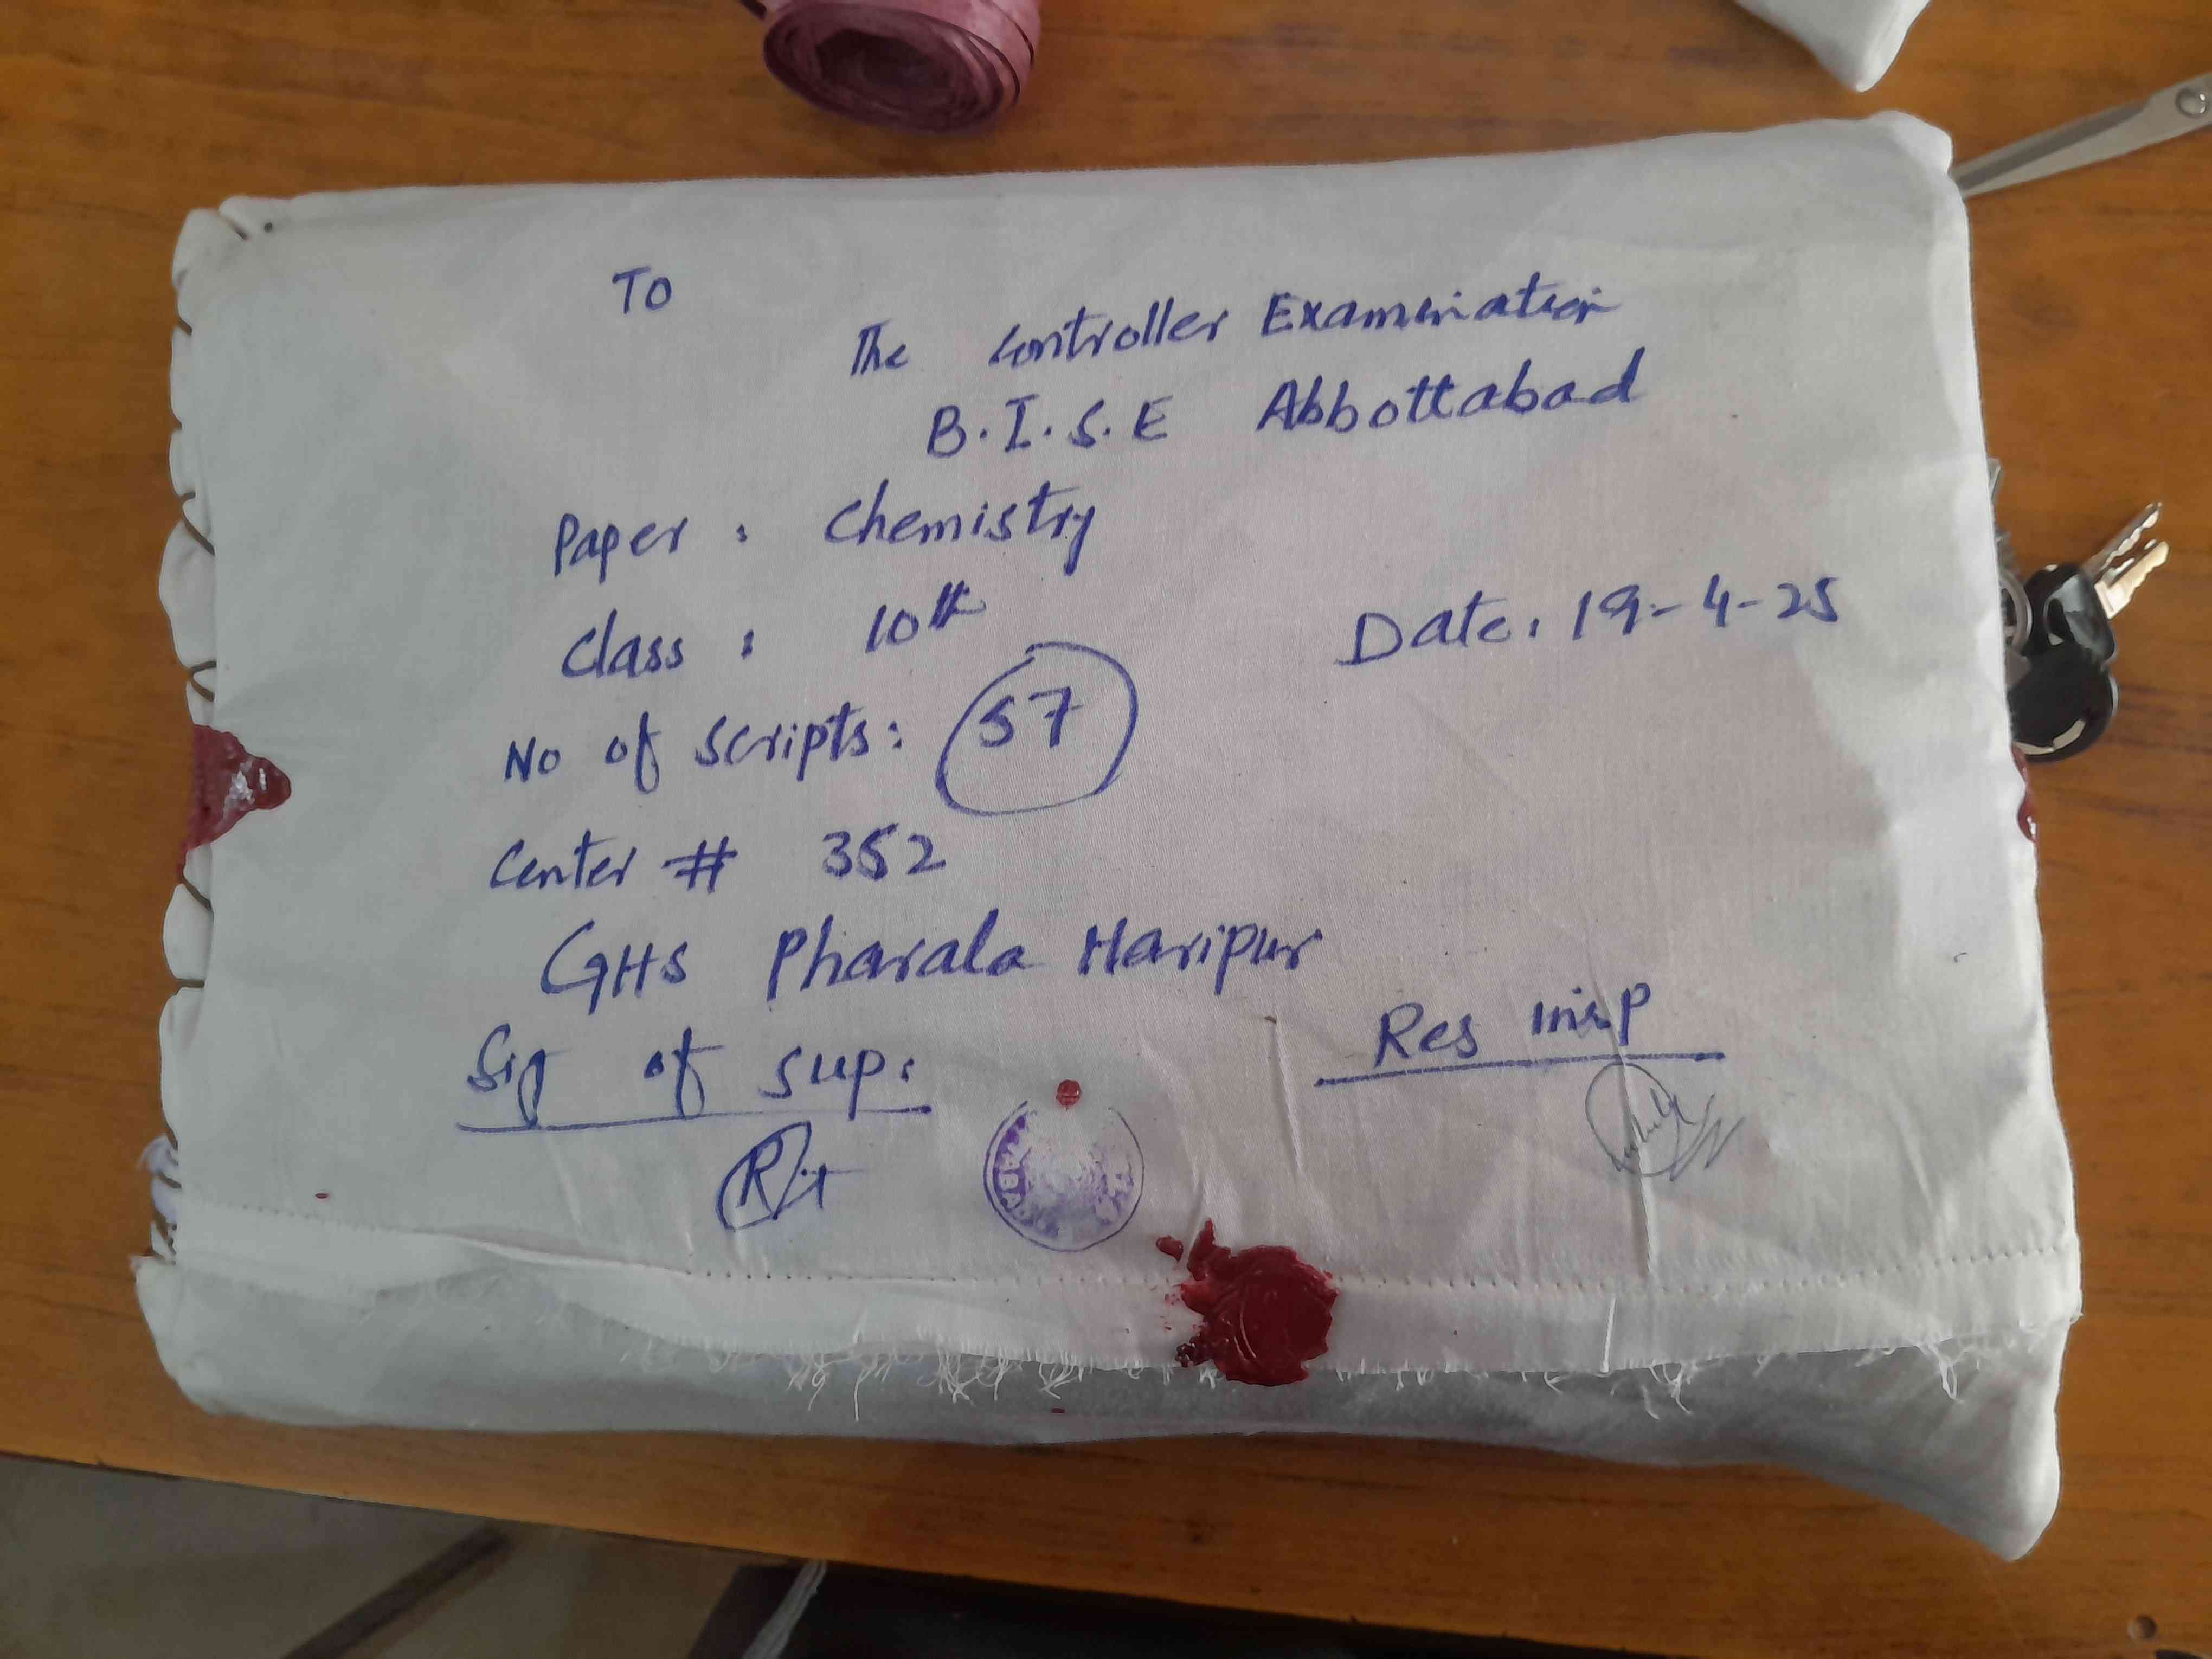 To
The Controller Examination
B.I.S.E Abbottabad
Paper : Chemistry
Class : 10th
Date: 19-4-25
No of scripts: 57
Center # 352
GHS Pharala Haripur
Sig of sup:
Res insp